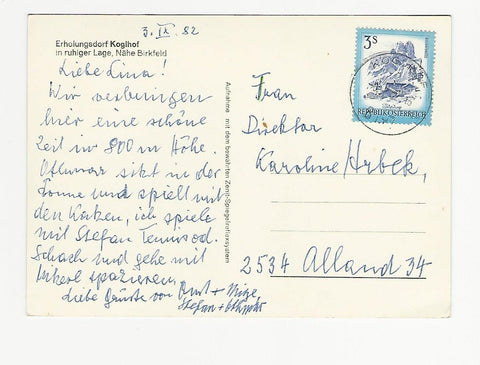 3. IX. 82
Erholungsdorf Koglhof
in ruhiger Lage, Nähe Birkfeld
Liebe Lina!
Wir verbringen
hier eine schöne
Zeit in 800 m Höhe.
Othmar sitzt in der
Sonne und spielt mit
den Katzen, ich spiele
mit Stefan Tennis od.
Schach und gehe mit
spazieren.
Liebe Grüsse von
Stefan +
Aufnahme mit dem bewährten
Frau
Direktor
Karoline Hrbek,
2534 Alland 34
3 S
REPUBLIK ÖSTERREICH